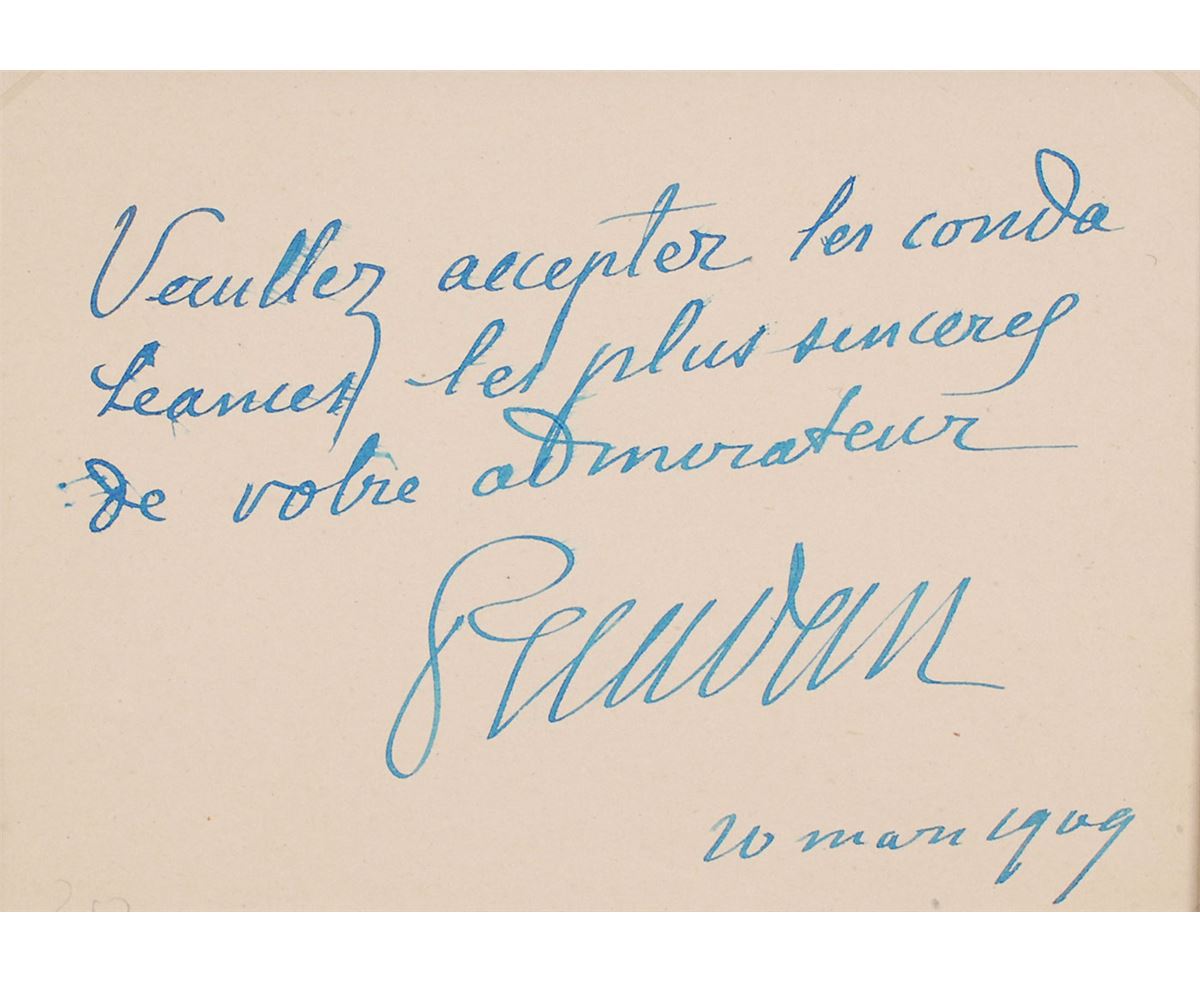 Veuillez accepter les condo
leances les plus sinceres
de votre admirateur
20 mars 1909